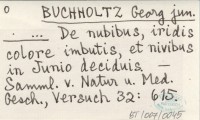 0
BUCHHOLTZ Georg jun.
. ... De nubibus, iridis
colore imbutis, et nivibus
in Junio deciduis —
Samml. v. Natur u. Med.
Gesch., Versuch 32: 615.
BT/007/0045